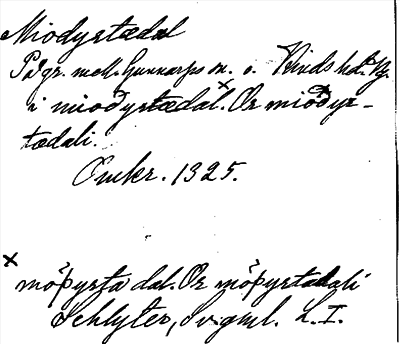 Miodyrtædal
På gr. mell. Gunnarps sn. o. Kinds hd. Vg.
i mioðyrtædal.x Or mioðyr-
tædali.
Omkr. 1325.
x
möþyrta dal. Or möþyrtadali
Schlyter, Sv. gml. L. I.